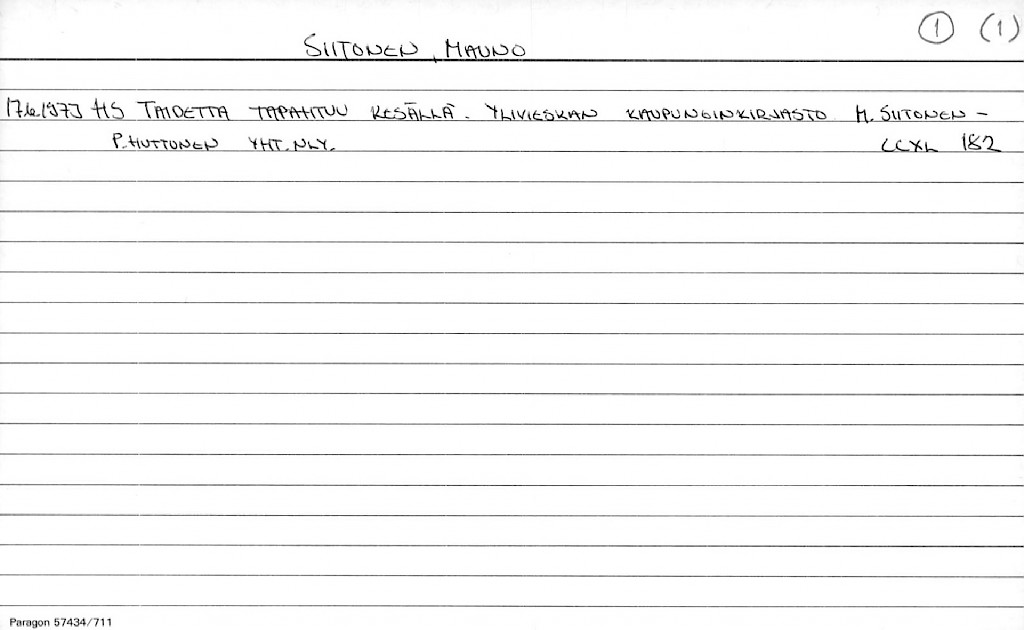 ① (1)
SIITONEN, MAUNO
17.6.1973 HS TAIDETTA TAPAHTUU KESÄLLÄ. YLIVIESKAN KAUPUNGINKIRJASTO M. SIITONEN –
P. HUTTUNEN YHT. NLY. CCXL 182
Paragon 57434/711